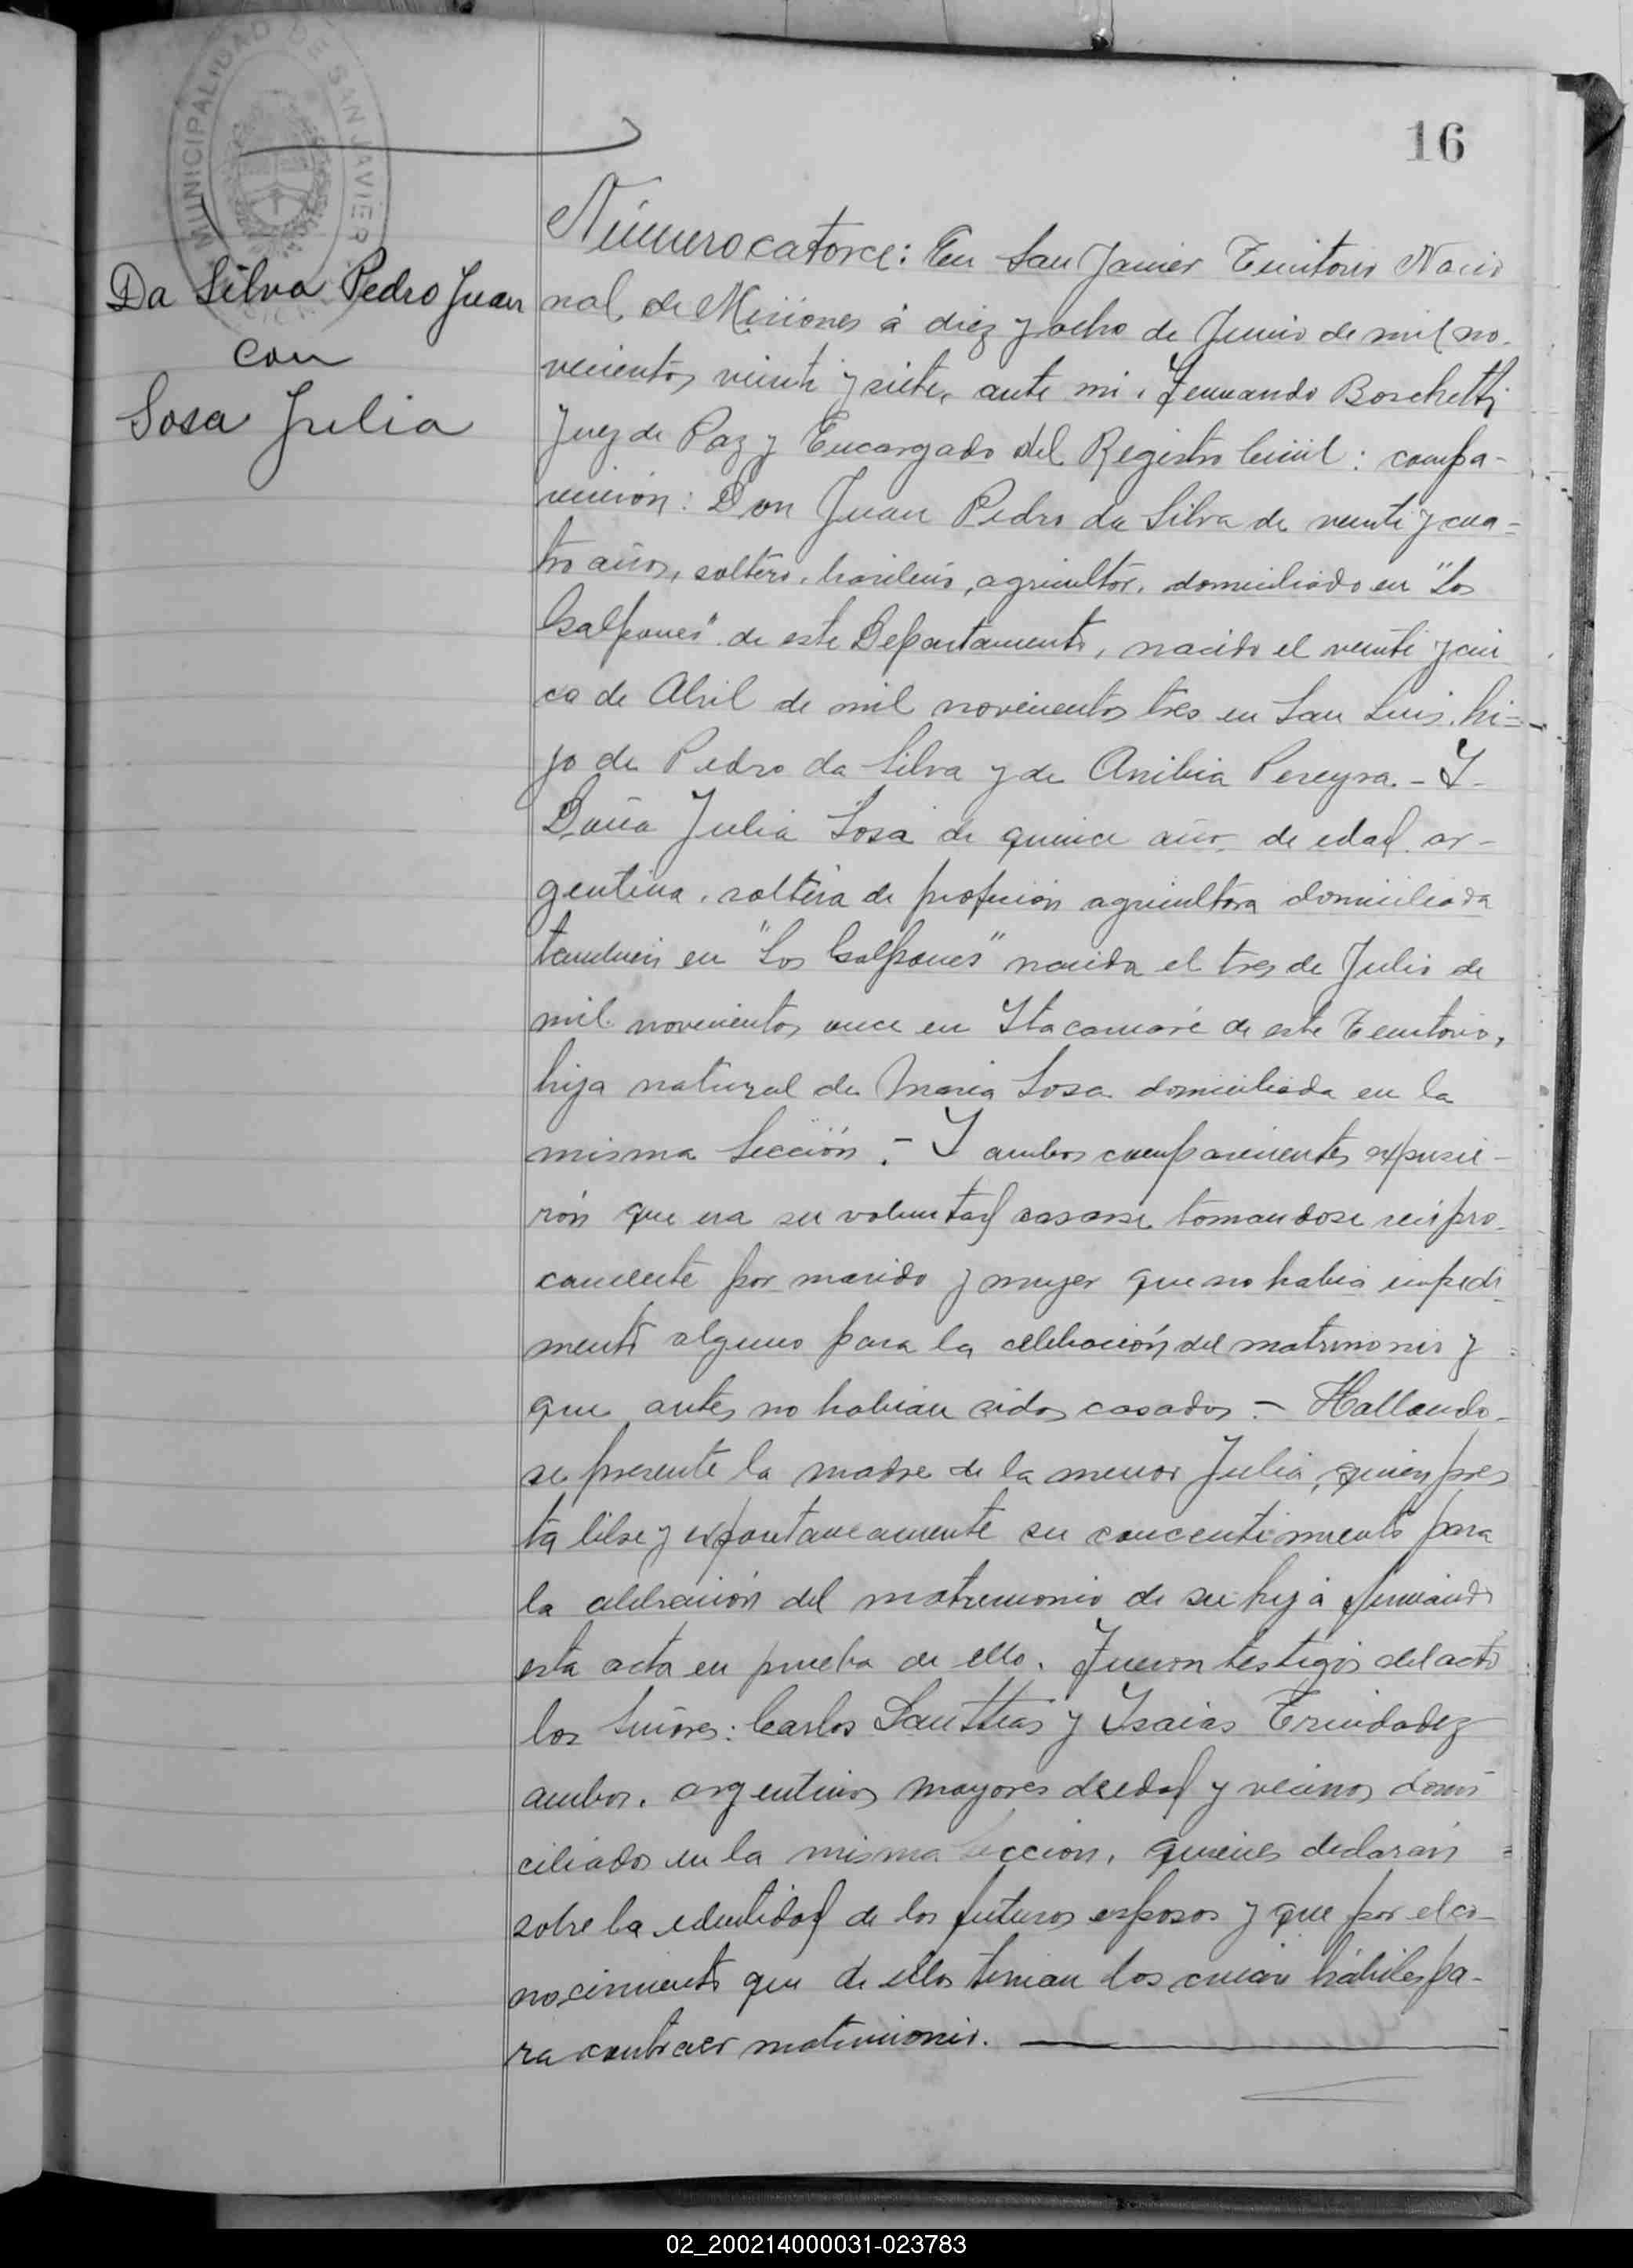 MUNICIPALIDAD DE SAN JAVIER
16
Da Silva Pedro Juan
con
Sosa Julia
Número catorce: En San Javier Territorio Nacio
nal de Misiones á diez y ocho de Junio de mil no-
vecientos veinte y siete, ante mi, Fernando Boschetti
Juez de Paz y Encargado del Registro Civil: compa-
recieron: Don Juan Pedro da Silva de veinte y cua=
tro años, soltero, brasilero, agricultor, domiciliado en "Los
Galpones" de este Departamento, nacido el veinte y cin
co de Abril de mil novecientos tres en San Luis, hi=
jo de Pedro da Silva y de Pereyra - Y
Doña Julia Sosa de quince años de edad, ar-
gentina, soltera de profesión agricultora domiciliada
tambien en "Los Galpones" nacida el tres de Julio de
mil novecientos once en Itacaruaré de este Territorio,
hija natural de Maria Sosa domiciliada en la
misma Sección. - Y ambos comparecientes expusie-
rón que era su voluntad casarse tomandose recipro-
camente por marido y mujer que no habia impedi
mento alguno para la celebración del matrimonio y
que antes no habian sidos casados - Hallando-
se presente la madre de la menor Julia, quien pres
ta libre y expontaneamente su concentimiento para
la celebración del matrimonio de su hija firmando
esta acta en prueba de ello. Fueron testigos del acto
los Señores: Carlos y Isaias Trindadez
ambos, argentinos mayores de edad y vecinos domi
ciliados en la misma Sección, quienes declarán
sobre la identidad de los futuros esposos y que por el co-
nocimiento que de ellos tenian los creian hábiles pa-
ra contraer matrimonio.
02_200214000031-023783